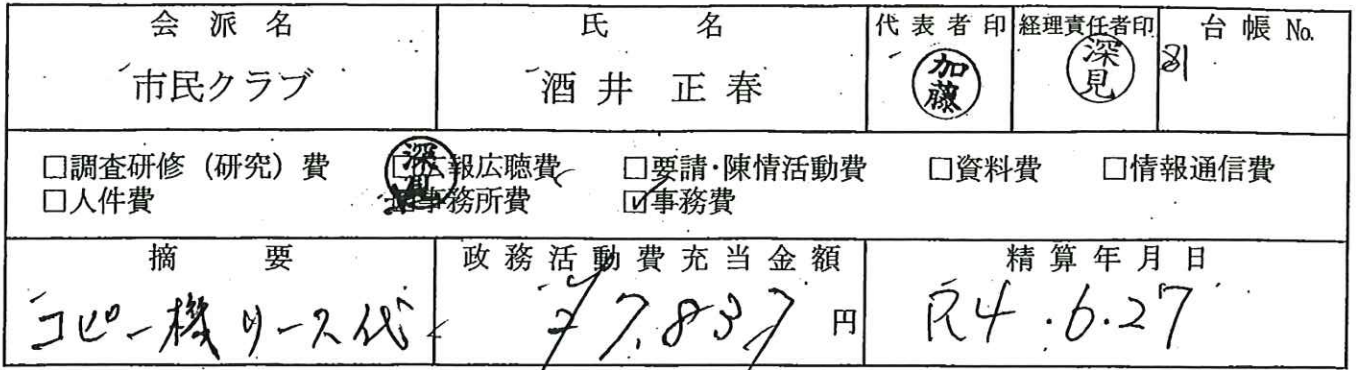 会派名 氏名 代表者印 経理責任者印 台帳 No.
市民クラブ 酒井 正春 加藤 深見 81
□調査研修(研究)費 □広報広聴費 □要請・陳情活動費 □資料費 □情報通信費
□人件費 ☑事務所費 ☑事務費
深見
摘要 政務活動費充当金額 精算年月日
コピー機リース代 ¥7,837 円 R4.6.27